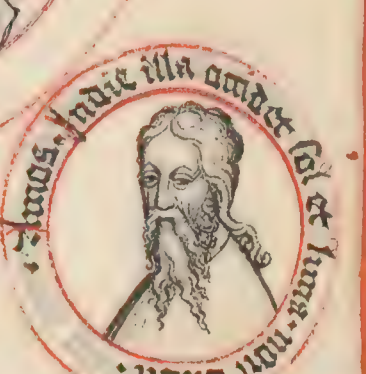 ·Amos. Indie illa occidet sol et luna. non